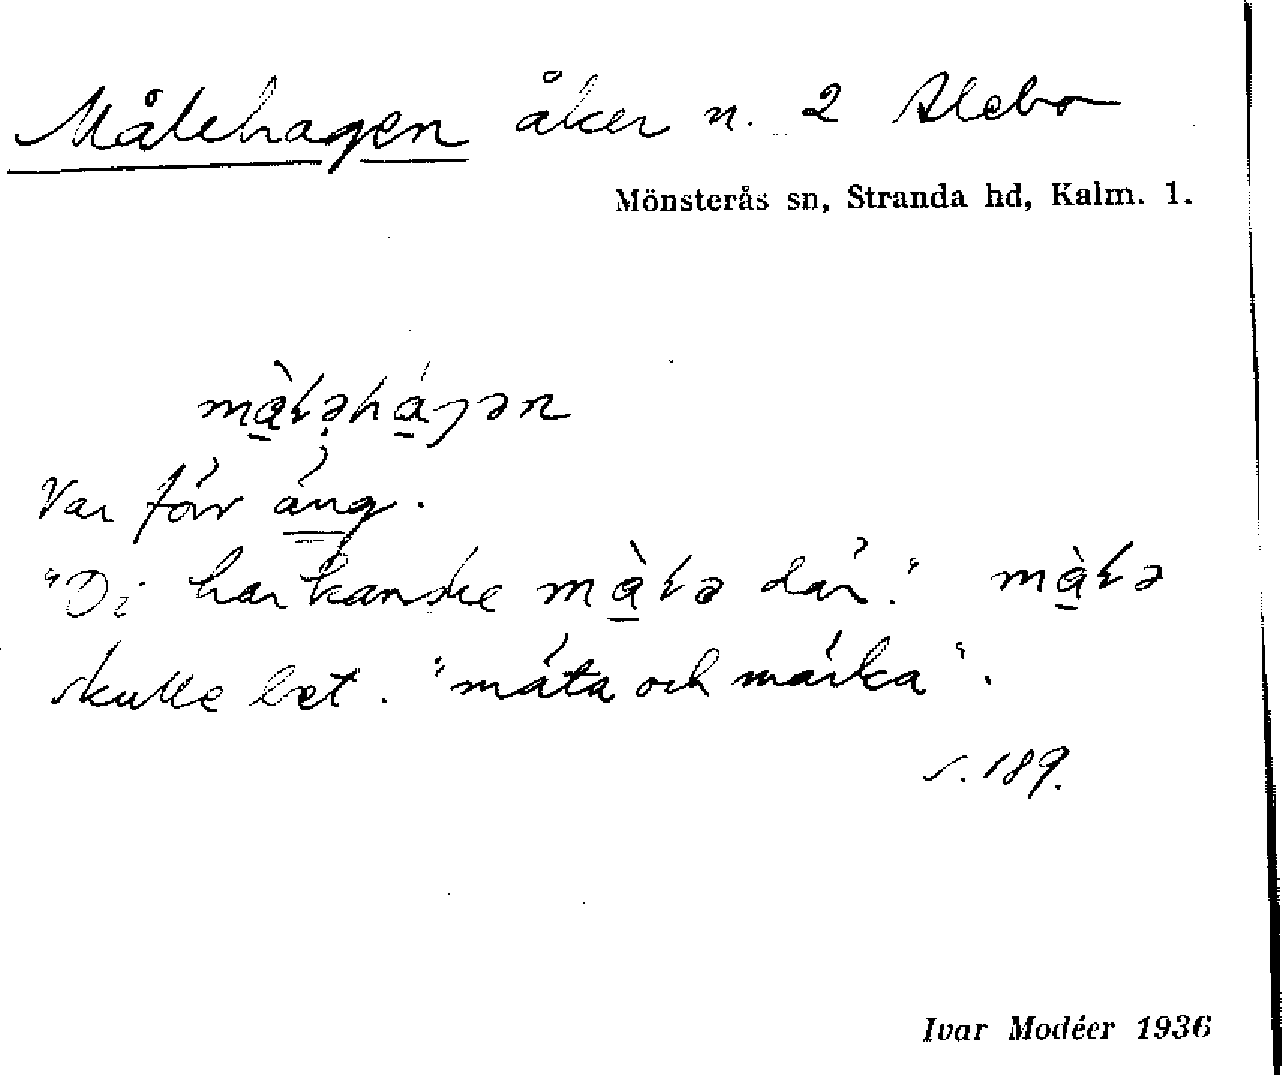 Målehagen åker n. 2 Alebo
Mönsterås sn, Stranda hd, Kalm. l.
màɬəhágən
Var förr äng.
"Di har kanske màɬə där." màɬə
skulle bet. "mäta och märka".
s. 189.
Ivar Modéer 1936